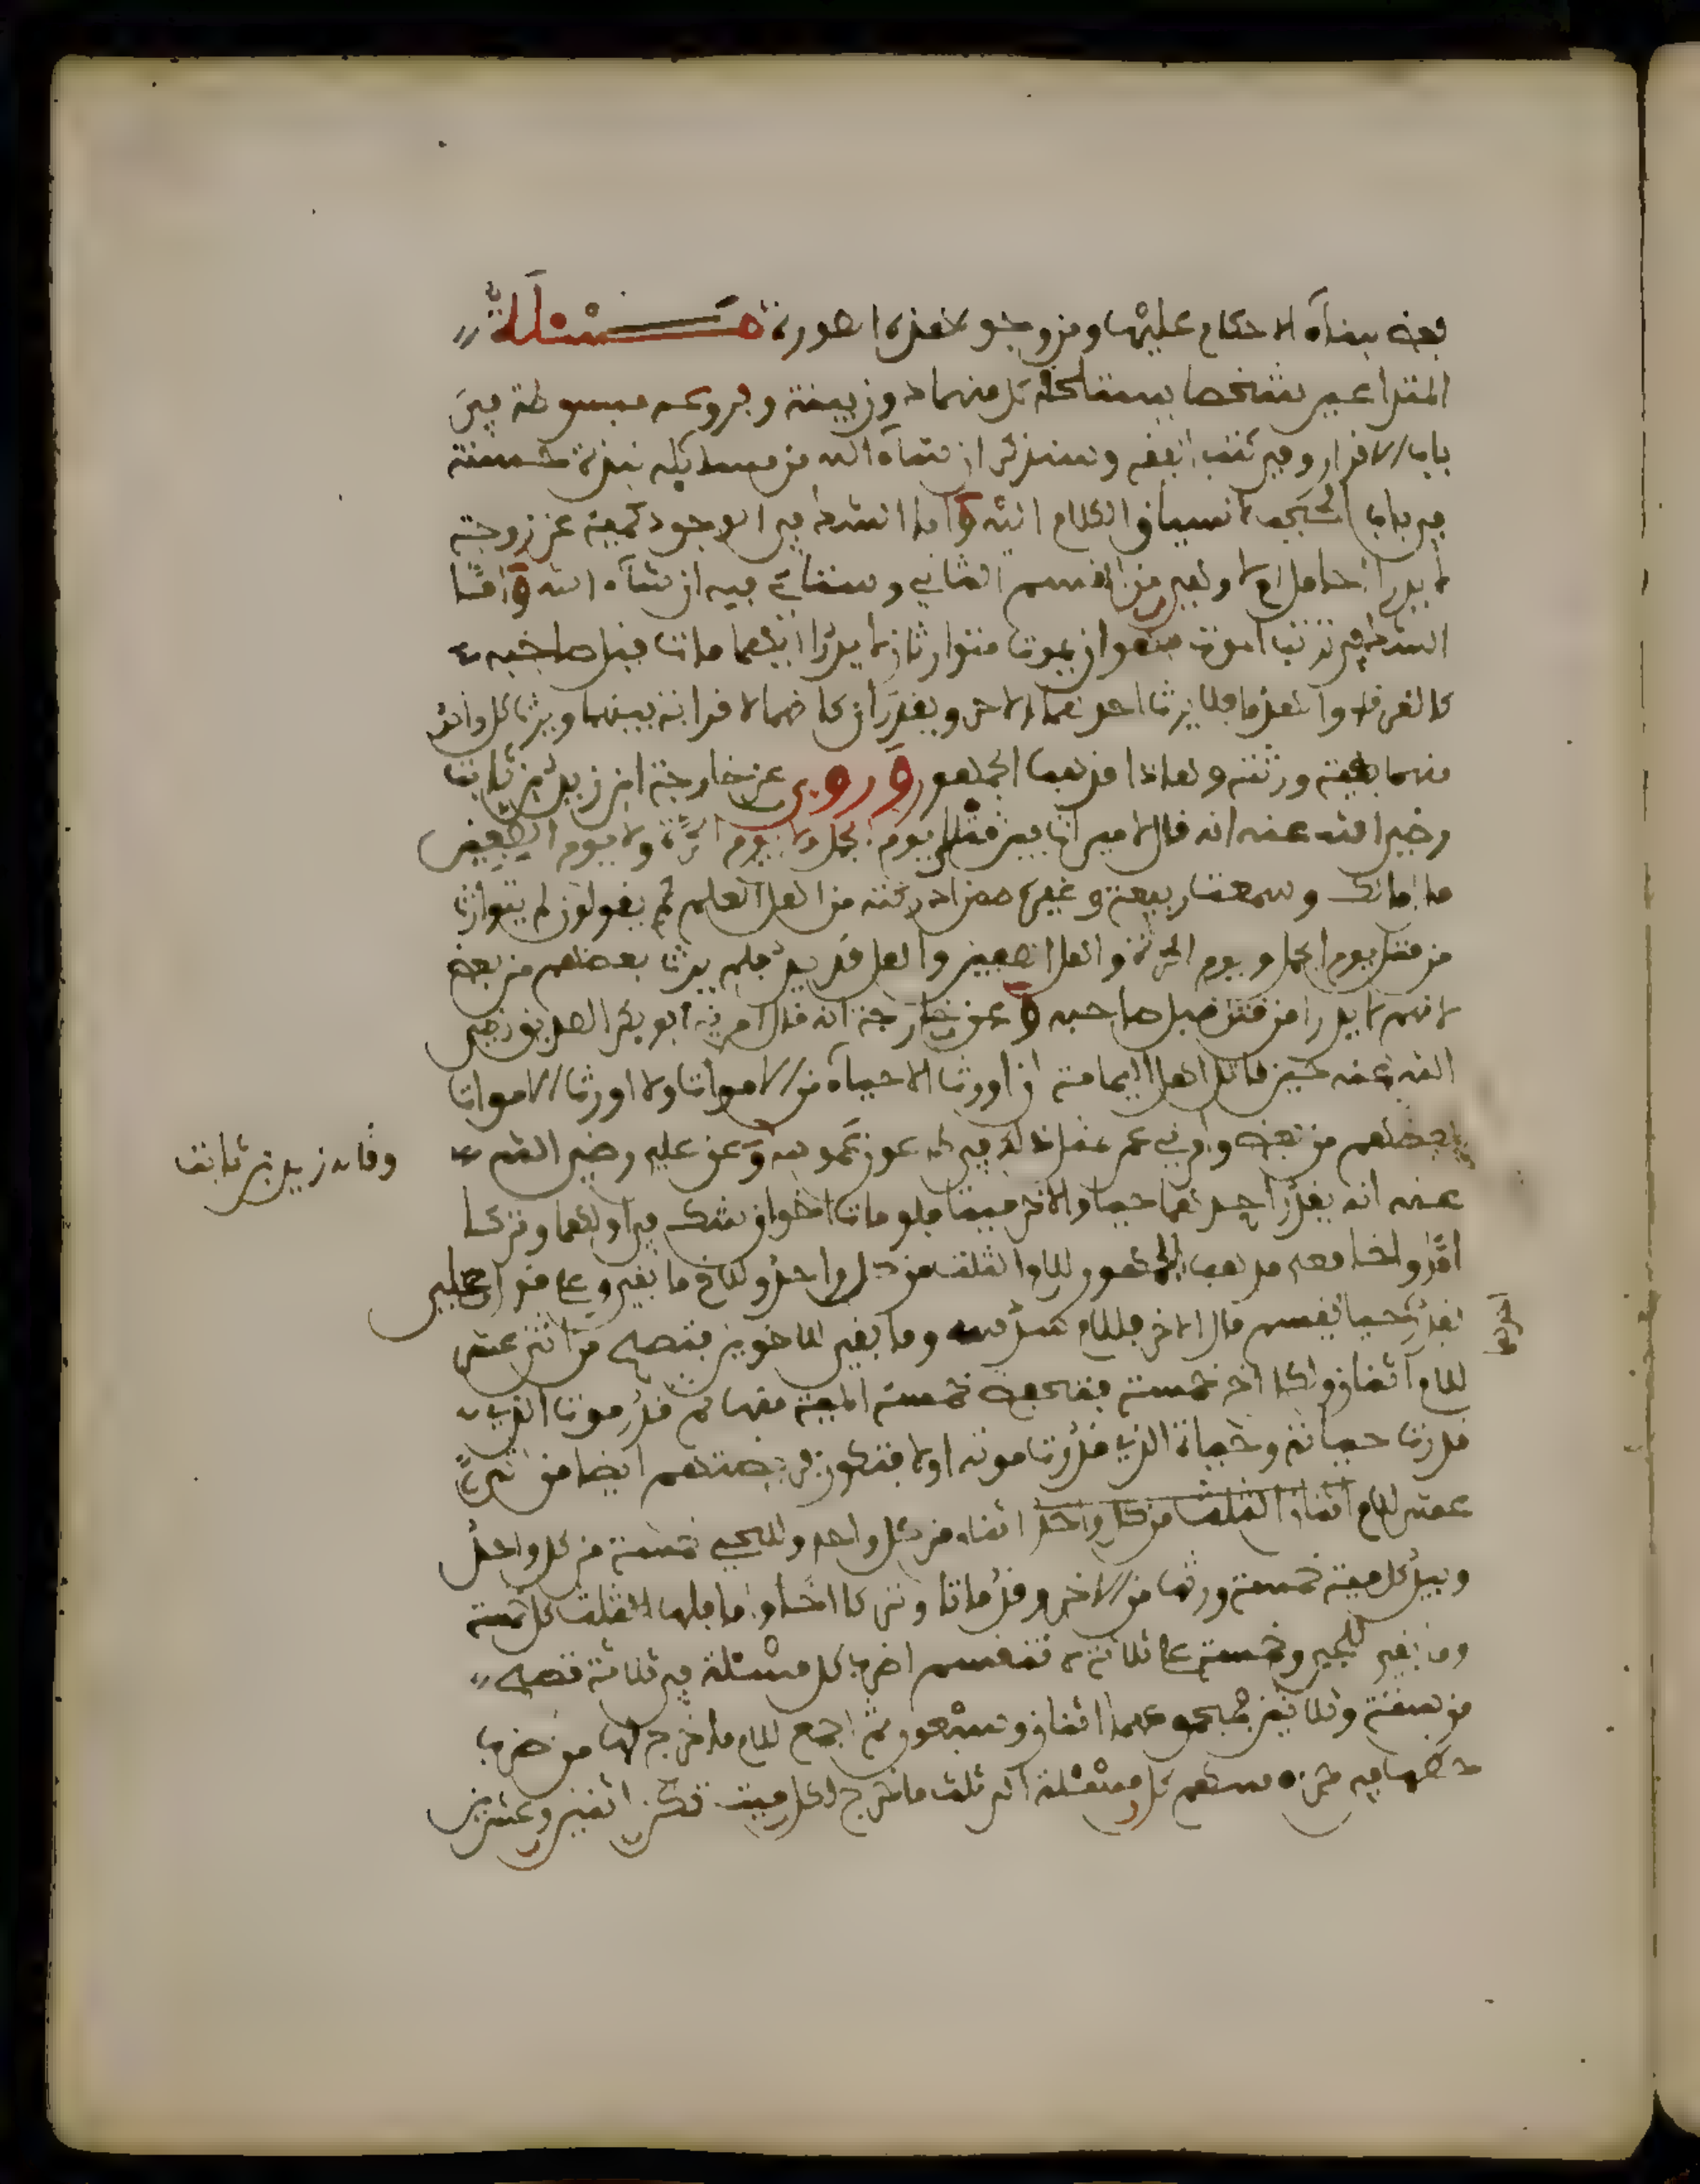 بعض بناء الاحكام عليها ومن وجو هذه الصورة مسئلة
المتداعيين شخصا يستلحقه كل منهما دون بينة وفروعه مبسوطة في
باب الاقرار وفي كتب الفقه وسنذكر ان شاء الله من مسائله نبذة حسنة
في باب انسياق الكلام اليه واما الشك في الوجود كميت عن زوجة
لا يدرا احامل ام لا وهي من القسم الثاني وسنتاتي فيه ان شاء الله واما
الشك في ترتب الموت فهو ان يموت متوارثان لا يدرا ايهما مات قبل صاحبه
كالغرقا والهدما فلا يرث احدهما الاخر ويقدر ان كانهما لا قرابة بينهما ويرث كل واحد
منهما بقية ورثته وهاذا مذهب الجمهور وروي عن خارجة ابن زيد بن ثابت
رضي الله عنه انه قال لا ميراث بين قتلا يوم الجمل ولا يوم الحرة ولا يوم الصفين
قال مالك وسمعت ربيعة وغيره ممن ادركته من اهل العلم يقولون لم يتوارث
من قتل يوم الجمل ويوم الحرة واهل الصفين واهل قديد فلم يرث بعضهم من بعض
لانهم لا يدرا من قتل قبل صاحبه وعن خارجة انه قال امرني ابو بكر الصديق رضي
الله عنه حين قاتل اهل اليمامة ان اورث الاحياء من الاموات ولا اورث الاموات
بعضهم من بعض وامرني عمر مثل ذلك في طاعون عمواس وعن علي رضي الله
وقاله زيد بن ثابت
عنه انه يقدر احدهما حيا والاخر ميتا فلو مات اخوان شك في اولهما وتركا
اما واخا فعلى مذهب الجمهور للام الثلث من كل واحد وللاخ ما بقي وعلى قول علي
يقدر حيا يقسم مال الاخر فللام سدسه وما بقي للاخوين فتصح من اثني عشر
احدهما
للام اثنان ولكل اخ خمسة فتحفظ خمسة الميت منها ثم قدر موت الذي
قدرت حياته وحياة الذي قدرت موته اولا فتكون فريضتهم ايضا من اثني
عشر للام اثنان الثلث من كل واحد اثنان من كل واحد وللحي خمسة من كل واحد
وبيد كل ميت خمسة ورثها من الاخر وقد ماتا وتركا اخا واما فلها الثلث كل خمسة
وما بقي للحي وخمسة على ثلاثة لا تنقسم اضرب كل مسئلة في ثلاثة تصح
من ستة وثلاثين مجموعهما اثنان وسبعون ثم اجمع للام ما خرج لها من ضرب
حظها في جزء سهم كل مسئلة الى ثلث ما خرج لكل ميت تكن اثنين وعشرين